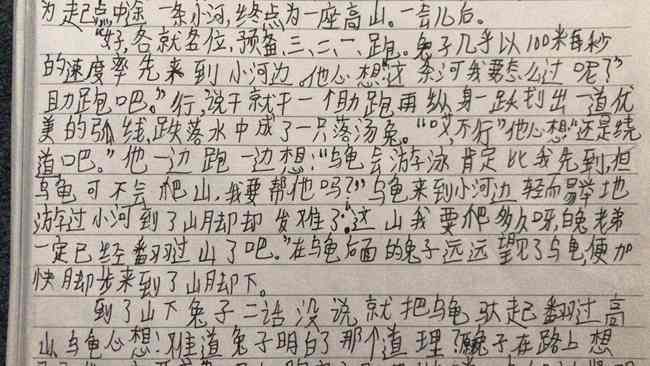 为起点中途一条小河,终点为一座高山。一会儿后。
“好,各就各位,预备,三、二、一、跑。兔子几乎以100米每秒
的速度率先来到小河边。他心想“这条河我要怎么过呢?”
“助跑吧。”行,说干就干一个助跑再纵身一跃划出一道优
美的弧线,跌落水中成了一只落汤兔。“哎,不行”他心想“还是绕
道吧。”他一边跑一边想:“乌龟会游泳肯定比我先到,但
乌龟可不会爬山,我要帮他吗?”乌龟来到小河边轻而易举地
游过小河到了山脚却却发难了:“这山我要爬多久呀,白兔老弟
一定已经翻过山了吧。”在乌龟后面的兔子远远望见了乌龟,便加
快脚步来到了山脚下。
到了山下兔子二话没说就把乌龟驮起翻过高
山乌龟心想:难道兔子明白了那个道理了?兔子在路上想